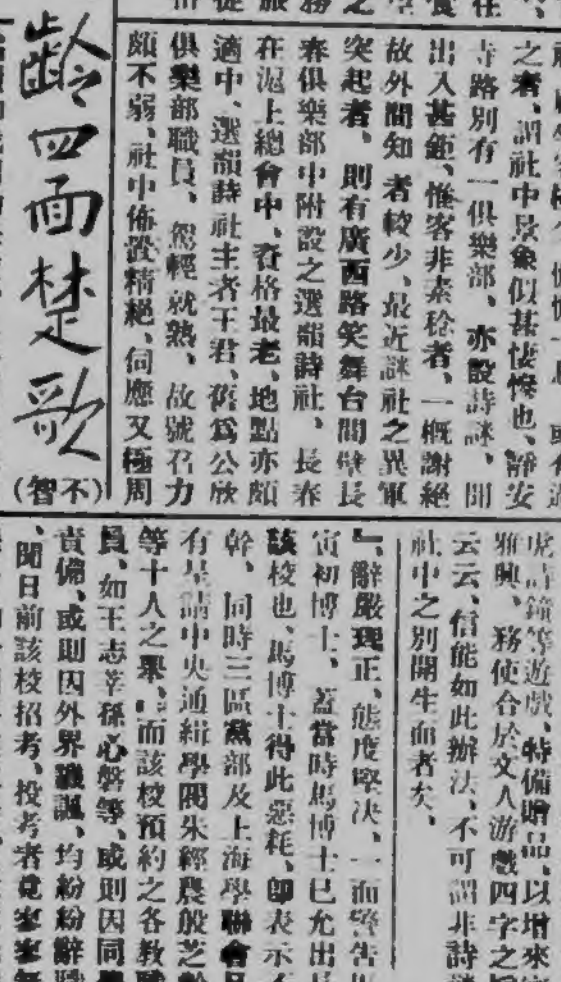 之者、謂社中景象似甚悽慘也、靜安
寺路別有一俱樂部、亦設詩謎、開
出入甚鉅、惟客非素稔者、一概謝絕
故外間知者較少、最近謎社之異軍
突起者、則有廣西路笑舞台間壁長
春俱樂部中附設之選韻詩社、長春
在滬上總會中、資格最老、地點亦頗
適中、選韻詩社主者王君、舊為公欣
俱樂部職員、駕輕就熟、故號召力
頗不弱、社中佈置精絕、伺應又極周
虎詩鐘等遊戲、特備贈品、以增來
雅興、務使合於文人游戲四字之
云云、信能如此辦法、不可謂非詩
社中之別開生面者矣、
齡四面楚歌
(不智)
辭嚴理正、態度堅决、一面警告
寅初博士、蓋當時馬博士已允出
該校也、馬博士得此惡耗、卽表示
幹、同時三區黨部及上海學聯會
有呈請中央通緝學閥朱經農殷芝
等十人之舉、而該校預約之各教職
員、如王志莘孫心磐等、或則因同
責備、或則因外界譏諷、均紛紛辭職
、聞日前該校招考、投考者竟寥寥